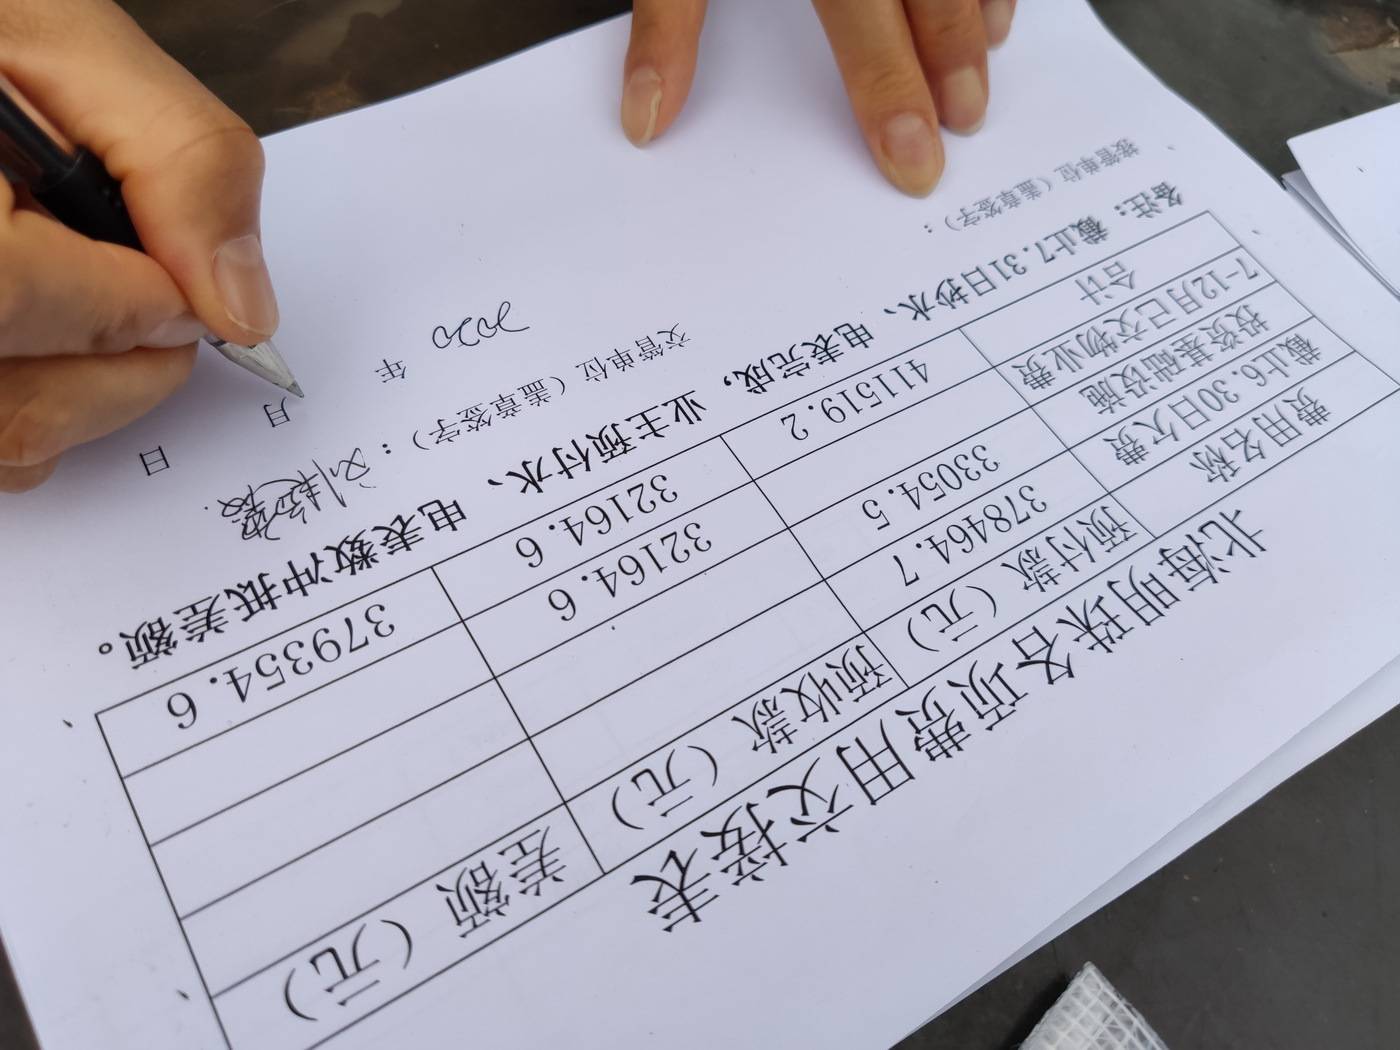 北海明珠各项费用交接表
费用名称 预付款（元） 预收款（元） 差额（元）
截止6.30日欠费 378464.7
投资基础设施 33054.5
7-12月已交物业费 32164.6
合计 411519.2 32164.6 379354.6
备注：截止7.31日抄水、电表完成，业主预付水、电表数冲抵差额。
接管单位（盖章签字）： 交管单位（盖章签字）：刘
2020 年 月 日